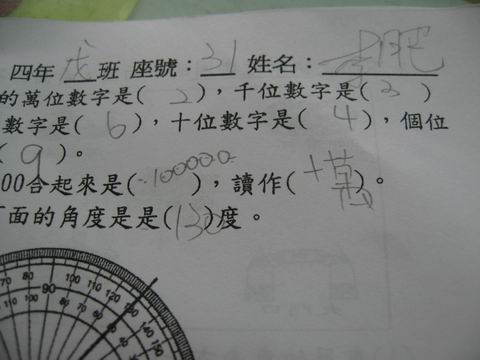 四年 戊 班 座號：31 姓名：李肥
的萬位數字是( 2 )，千位數字是( 3 )
數字是( 6 )，十位數字是( 4 )，個位
( 9 )。
00合起來是( 100000 )，讀作( 十萬 )。
下面的角度是是( 130 )度。
70 80 90 100 110 120 130
110 100 90 80 70 60 50